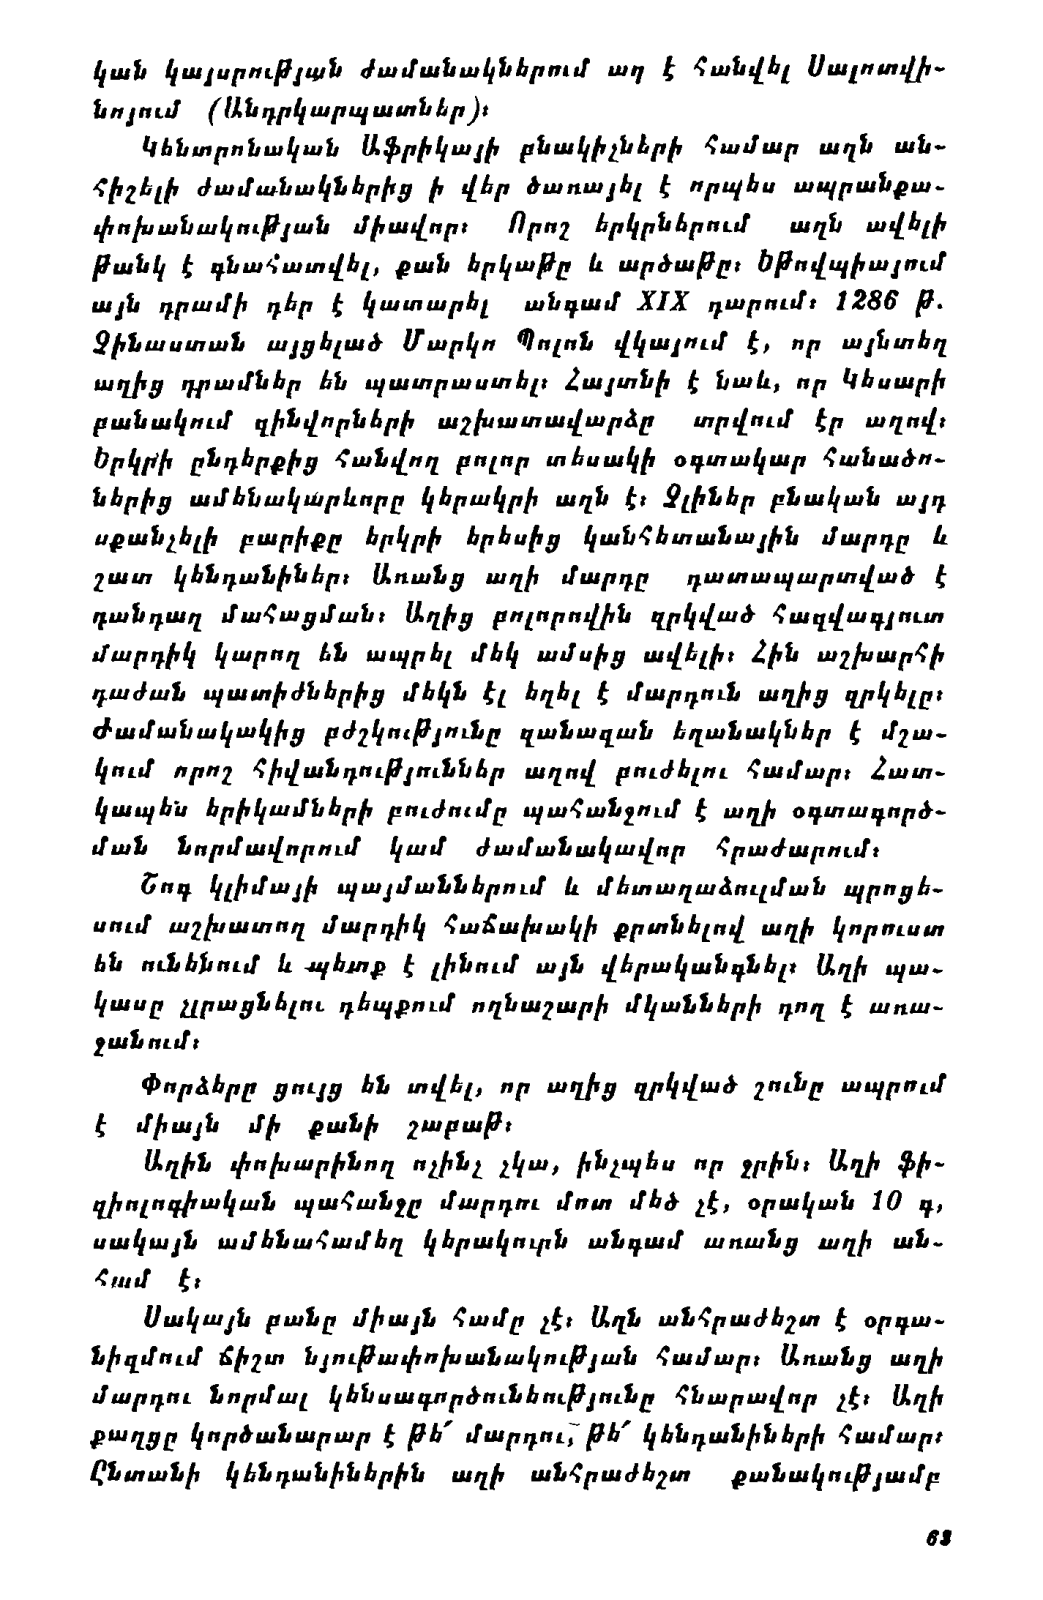 կան կայսրության ժամանակներում աղ է հանվել Սալոտվի-
նոյում (Անդրկարպատներ)։
Կենտրոնական Աֆրիկայի բնակիչների համար աղն ան-
հիշելի ժամանակներից ի վեր ծառայել է որպես ապրանքա-
փոխանակության միավոր։ Որոշ երկրներում աղն ավելի
թանկ է գնահատվել, քան երկաթը և արծաթը։ Եթովպիայում
այն դրամի դեր է կատարել անգամ XIX դարում։ 1286 թ.
Չինաստան այցելած Մարկո Պոլոն վկայում է, որ այնտեղ
աղից դրամներ են պատրաստել։ Հայտնի է նաև, որ Կեսարի
բանակում զինվորների աշխատավարձը տրվում էր աղով։
Երկրի ընդերքից հանվող բոլոր տեսակի օգտակար հանածո-
ներից ամենակարևորը կերակրի աղն է։ Չլիներ բնական այդ
սքանչելի բարիքը երկրի երեսից կանհետանային մարդը և
շատ կենդանիներ։ Առանց աղի մարդը դատապարտված է
դանդաղ մահացման։ Աղից բոլորովին զրկված հազվագյուտ
մարդիկ կարող են ապրել մեկ ամսից ավելի։ Հին աշխարհի
դաժան պատիժներից մեկն էլ եղել է մարդուն աղից զրկելը։
Ժամանակակից բժշկությունը զանազան եղանակներ է մշա-
կում որոշ հիվանդություններ աղով բուժելու համար։ Հատ-
կապես երիկամների բուժումը պահանջում է աղի օգտագործ-
ման նորմավորում կամ ժամանակավոր հրաժարում։
Շոգ կլիմայի պայմաններում և մետաղաձուլման պրոցե-
սում աշխատող մարդիկ հաճախակի քրտնելով աղի կորուստ
են ունենում և պետք է լինում այն վերականգնել։ Աղի պա-
կասը չլրացնելու դեպքում ողնաշարի մկանների դող է առա-
ջանում։
Փորձերը ցույց են տվել, որ աղից զրկված շունը ապրում
է միայն մի քանի շաբաթ։
Աղին փոխարինող ոչինչ չկա, ինչպես որ ջրին։ Աղի ֆի-
զիոլոգիական պահանջը մարդու մոտ մեծ չէ, օրական 10 գ,
սակայն ամենահամեղ կերակուրն անգամ առանց աղի ան-
համ է։
Սակայն բանը միայն համը չէ։ Աղն անհրաժեշտ է օրգա-
նիզմում ճիշտ նյութափոխանակության համար։ Առանց աղի
մարդու նորմալ կենսագործունեությունը հնարավոր չէ։ Աղի
քաղցը կործանարար է թե՛ մարդու, թե՛ կենդանիների համար։
Ընտանի կենդանիներին աղի անհրաժեշտ քանակությամբ
63